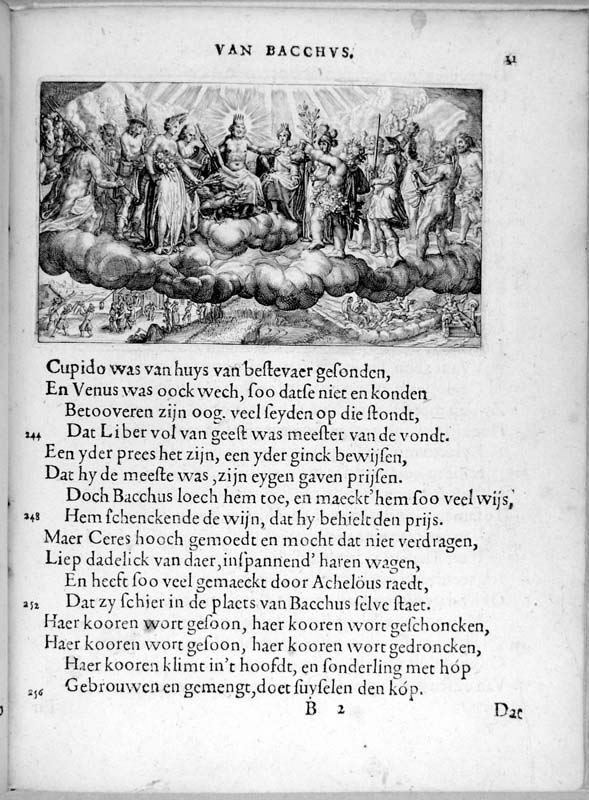 VAN BACCHVS.
11
Cupido was van huys van bestevaer gesonden,
En Venus was oock wech, soo datse niet en konden
Betooveren zijn oog. veel seyden op die stondt,
244 Dat Liber vol van geest was meester van de vondt.
Een yder prees het zijn, een yder ginck bewijsen,
Dat hy de meeste was, zijn eygen gaven prijsen.
Doch Bacchus loech hem toe, en maeckt'hem soo veel wijs,
248 Hem schenckende de wijn, dat hy behielt den prijs.
Maer Ceres hooch gemoedt en mocht dat niet verdragen,
Liep dadelick van daer, inspannend' haren wagen,
En heeft soo veel gemaeckt door Acheloüs raedt,
252 Dat zy schier in de plaets van Bacchus selve staet.
Haer kooren wort gesoon, haer kooren wort geschoncken,
Haer kooren wort gesoon, haer kooren wort gedroncken,
Haer kooren klimt in't hoofdt, en sonderling met hóp
256 Gebrouwen en gemengt, doet suyselen den kóp.
B 2
Dat